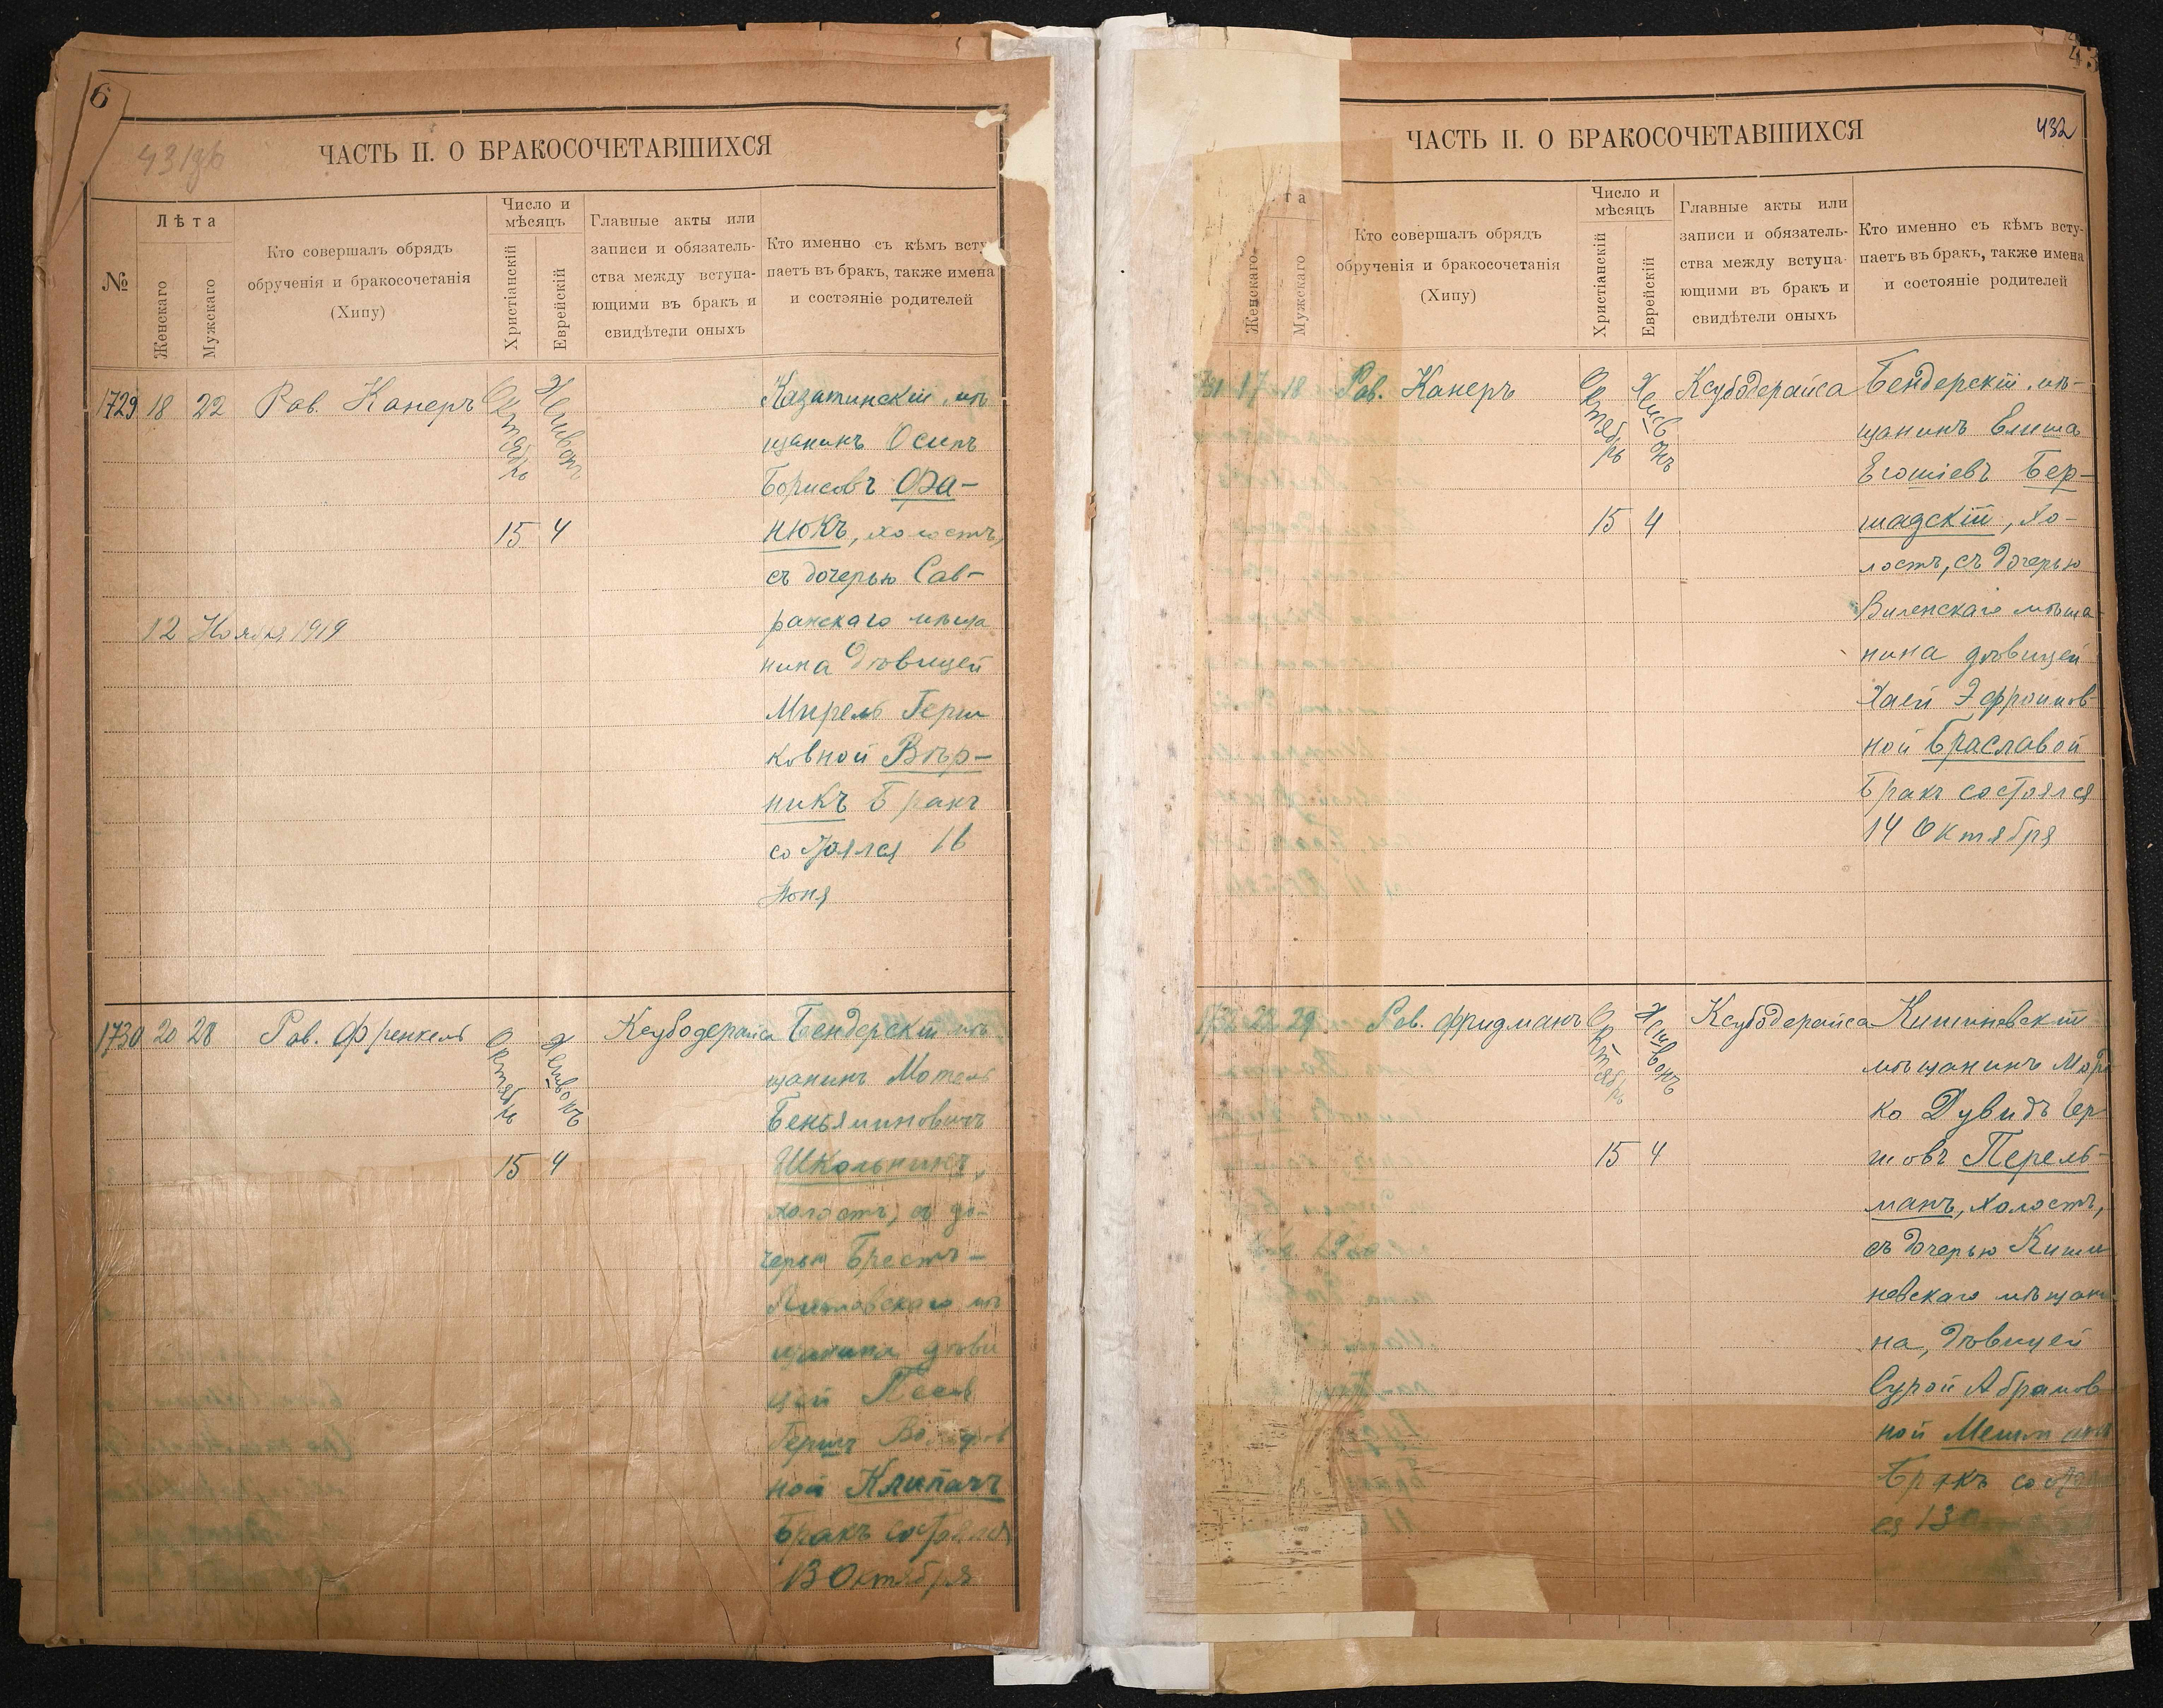 6
431об
ЧАСТЬ II. О БРАКОСОЧЕТАВШИХСЯ
№
Лѣта
Женскаго
Мужскаго
Кто совершалъ обрядъ
обрученія и бракосочетанія
(Хипу)
Число и
мѣсяцъ
Христіанскій
Еврейскій
Главные акты или
записи и обязатель-
ства между вступа-
ющими въ бракъ и
свидѣтели оныхъ
Кто именно съ кѣмъ всту
паетъ въ бракъ, также имена
и состояніе родителей
1729 18 22 Рав. Канеръ Октябрь Хешвонъ
15 4
12 Ноября 1919
Казатинскій мѣ
щанинъ Осипъ
Борисовъ Фа-
нюкъ, холостъ,
съ дочерью Сав-
ранскаго мѣща
нина дѣвицей
Мирель Герш
ковной Вѣр-
никъ Бракъ
состоялся 16
Іюня
1730 20 28 Рав. Френкель Октябрь Хешвонъ Ксубодерайса
15 4
Бендерскій мѣ
щанинъ Мотель
Беньяминовичъ
Школьникъ,
холостъ, съ до-
черью Брестъ-
Литовскаго мѣ
щанина дѣви
цей Песя
Герш
ной Клипачъ
Бракъ состоялся
13 Октября
43
432
ЧАСТЬ II. О БРАКОСОЧЕТАВШИХСЯ
та
Женскаго
Мужскаго
Кто совершалъ обрядъ
обрученія и бракосочетанія
(Хипу)
Число и
мѣсяцъ
Христіанскій
Еврейскій
Главные акты или
записи и обязатель-
ства между вступа-
ющими въ бракъ и
свидѣтели оныхъ
Кто именно съ кѣмъ всту-
паетъ въ бракъ, также имена
и состояніе родителей
731 17 18 Рав. Канеръ Октябрь Хешвонъ Ксубодерайса
15 4
Бендерскій мѣ-
щанинъ Елиша
Егошіевъ Бер-
шадскій, хо-
лостъ, съ дочерью
Виленскаго мѣща-
нина дѣвицей
Хаей Эфроимов-
ной Браславой
Бракъ состоялся
14 Октября
1732 22 29 Рав. Фридманъ Октябрь Хешвонъ Ксубодерайса
15 4
Кишиневскій
мѣщанинъ Мор
ко Дувидъ Гер
шовъ Перель-
манъ, холостъ,
съ дочерью Киши
невскаго мѣщани
на, дѣвицей
Сурой Абрамов
ной
Бракъ состоял
ся 13